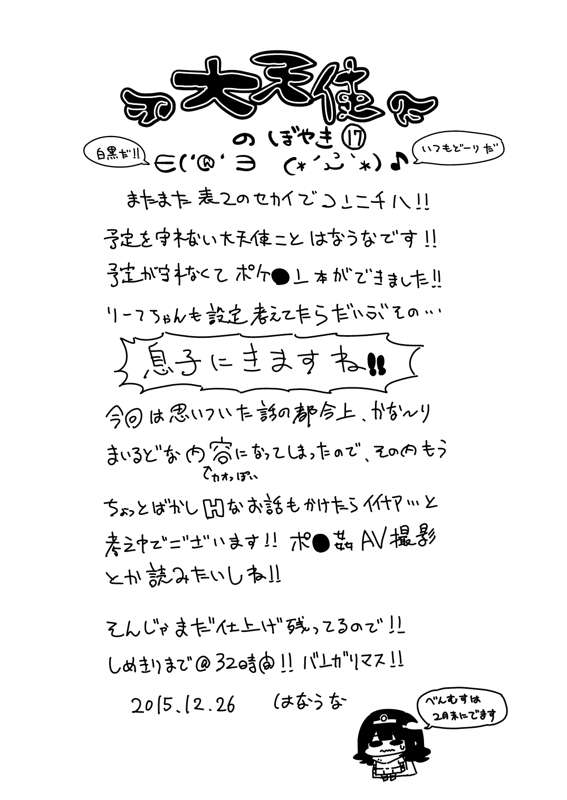 大天使
のぼやき⑰
白黒だ!!
∈('@'∋ (*´ω`*)♪
いつもどーりだ
またまた表2のセカイでコンニチハ!!
予定を守れない大天使ことはなうなです!!
予定が守れなくてポケ●ン本ができました!!
リーフちゃんも設定考えてたらだいぶその…
息子にきますね!!
今回は思いついた話の都合上、かな〜り
まいるどな内容になってしまったので、その内もう
カオっぽい
ちょっとばかしHなお話もかけたらイイナァ…と
考え中でございます!! ポ●姦AV撮影
とか読みたいしね!!
そんじゃまだ仕上げ残ってるので!!
しめきりまで@32時間!! バンガリマス!!
2015.12.26 はなうな
べんむすは
2月末にでます